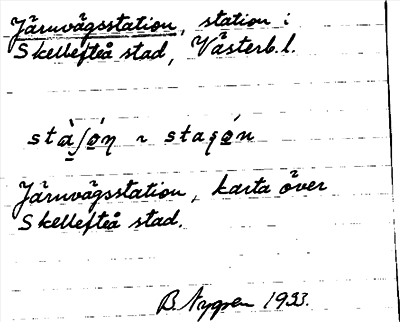 Järnvägsstation, station i
Skellefteå stad, Västerb.l.
Järnvägsstation, karta över
Skellefteå stad.
B. Nygren 1933.